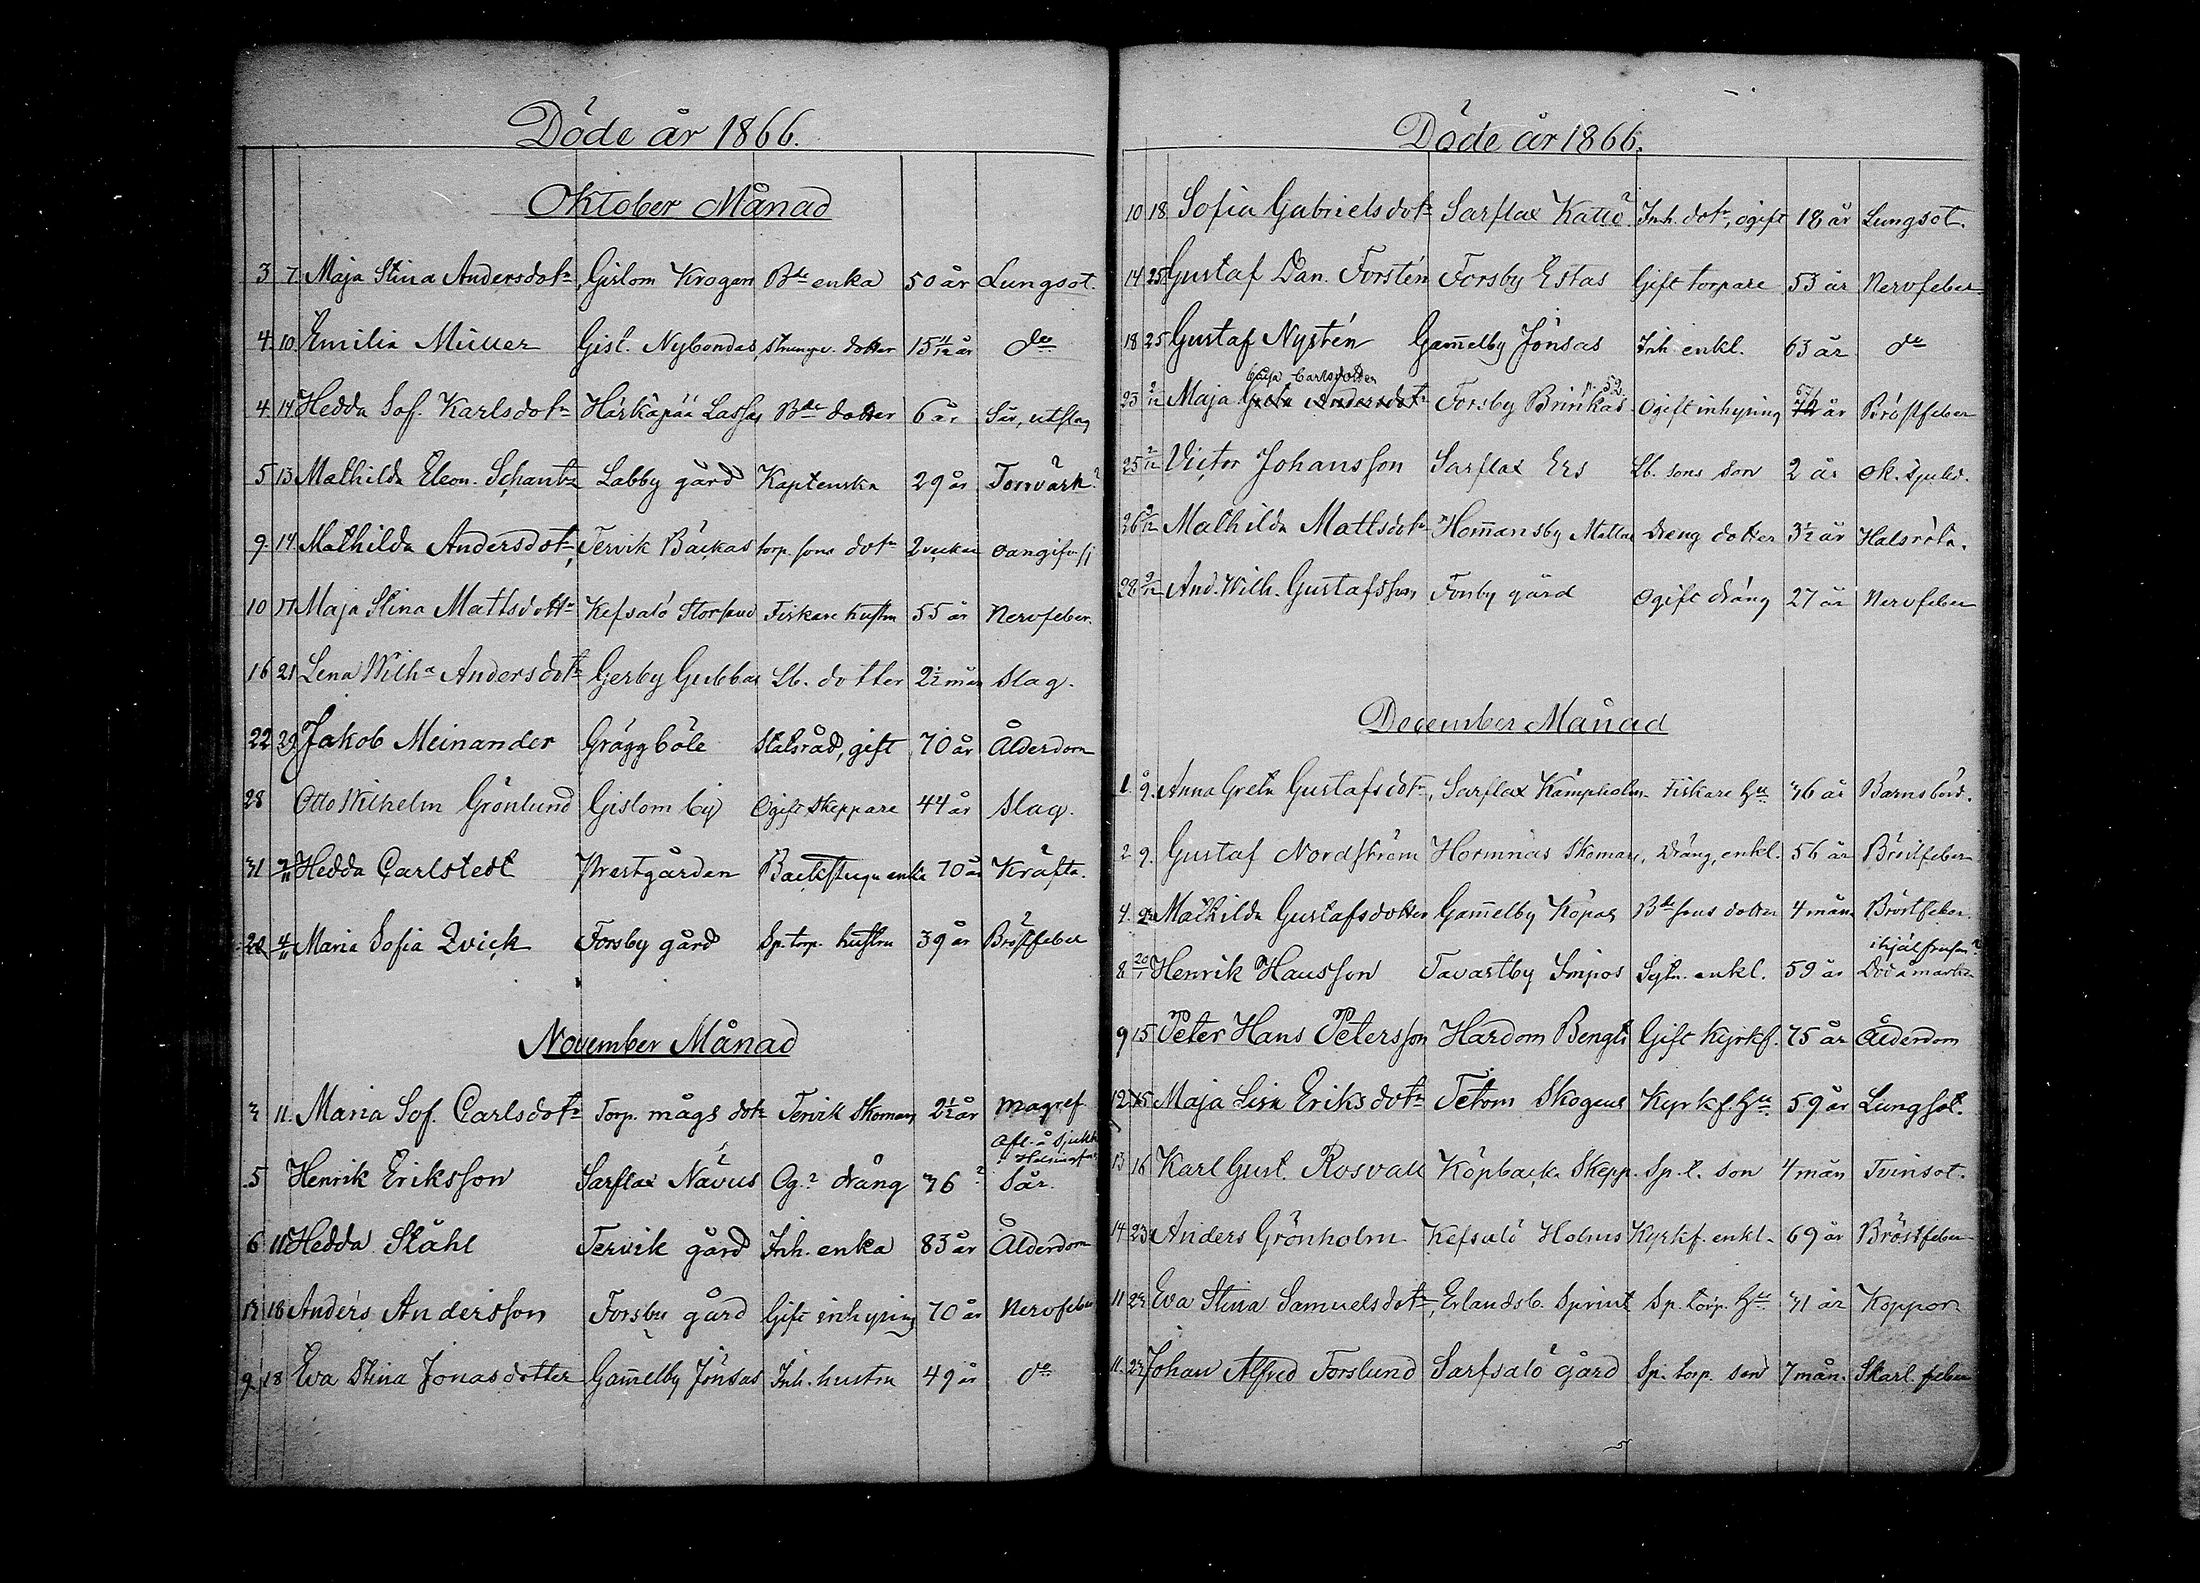 Döde år 1866.
Oktober Månad
3 7. Maja Stina Andersdotr Gislom Krogars Bde enka 50 år Lungsot.
4. 10. Emilia Müller Gisl. Nybondas, dotter 15 11/12 år do
4 14 Hedda Sof. Karlsdotr Härkäpää Lassas Bde dotter 6 år Sår, utslag
5 13 Mathilda Eleon. Schantz Labby gård Kaptenska 29 år Torrvärk?
9. 14 Mathilda Andersdotr, Tervik Backas torp. sons dotr 2 veckor oangifv. sj
10 17 Maja Stina Mattsdotter Kefsalö Storsund Fiskare hustru 55 år Nervfeber.
16 21 Lena Wilha Andersdotr Gerby Gubbas Lb. dotter 2½ mån Slag.
22 29 Jakob Meinander Gräggböle Statsråd, gift 70 år Ålderdom
28 Otto Wilhelm Grönlund Gislom by Ogift Skeppare 44 år Slag.
31 2/11 Hedda Carlstedt Prestgården Backstugu enka 70 år Kräfta.
28 4/11 Maria Sofia Qvick Forsby gård Sp. torp. hustru 39 år Bröstfeber
November Månad
3 11. Maria Sof. Carlsdotr Torp. mågs dotr Tervik Skomars 2½ år Magref
Afl. å sjukh
5 Henrik Eriksson Sarflax Nävus Og.? dräng 36? Sår.
6 11 Hedda Ståhl Tervik gård Inh. enka 83 år Ålderdom
13 18 Anders Andersson Forsby gård Gift inhysing 70 år Nervfeber
9 18 Eva Stina Jonasdotter Gam̄elby Jönsas Inh. hustru 49 år do
Döde år 1866.
10 18 Sofia Gabrielsdotr Sarflax Inh. dotr, ogift 18 år Lungsot.
14 25 Gustaf Dan. Forstén Forsby Estas Gift torpare 53 år Nervfeber.
18 25 Gustaf Nystén Gam̄elby Jönsas Inh. enkl. 63 år do
Caisa Carlsdotter
23 2/12 Maja Greta Andersdotr Forsby Brinkas Ogift inhysing 72 år Bröstfeber
25 2/12 Victor Johansson Sarflax Ers Lb. sons son 2 år Ok. sjukd.
26 2/12 Mathilda Mattsdotr Hom̄ansby Mattas Dreng dotter 3½ år Halsröta.
28 9/12 And. Wilh. Gustafsson Forsby gård Ogift dräng 27 år Nervfeber
December Månad
1. 9. Anna Greta Gustafsdotr, Sarflax Kämpholm Fiskare Hu 36 år Barnsbörd.
2 9. Gustaf Nordström Horminäs Skomars, Dräng, enkl. 56 år Bröstfeber
4. 23 Mathilda Gustafsdotter Gam̄elby Köpas Bde sons dotter 4 mån Bröstfeber.
ihjälfrusen?
8. 20/1 Henrik Hansson Tavastby Smipos Sytn. enkl. 59 år Död å marken
9 15 Peter Hans Petersson Hardom Bengts Gift Kyrkf. 75 år Ålderdom
12 15 Maja Lisa Eriksdotr Tetom Skogens Kyrkf. Hu 59 år Lungsot.
13 16 Karl Gust. Rosvall Köpbacka Skepp. Sp. t. son 4 mån Tvinsot.
14 23 Anders Grönholm Kefsalö Holms Kyrkf. enkl. 69 år Bröstfeber
11 23 Eva Stina Samuelsdotr, Erlandsb. Sprint Sp. torp. Hu 31 år Koppor
11. 23 Johan Alfred Forslund Sarfsalö gård Sp. torp. son 7 mån. Skarl. feber